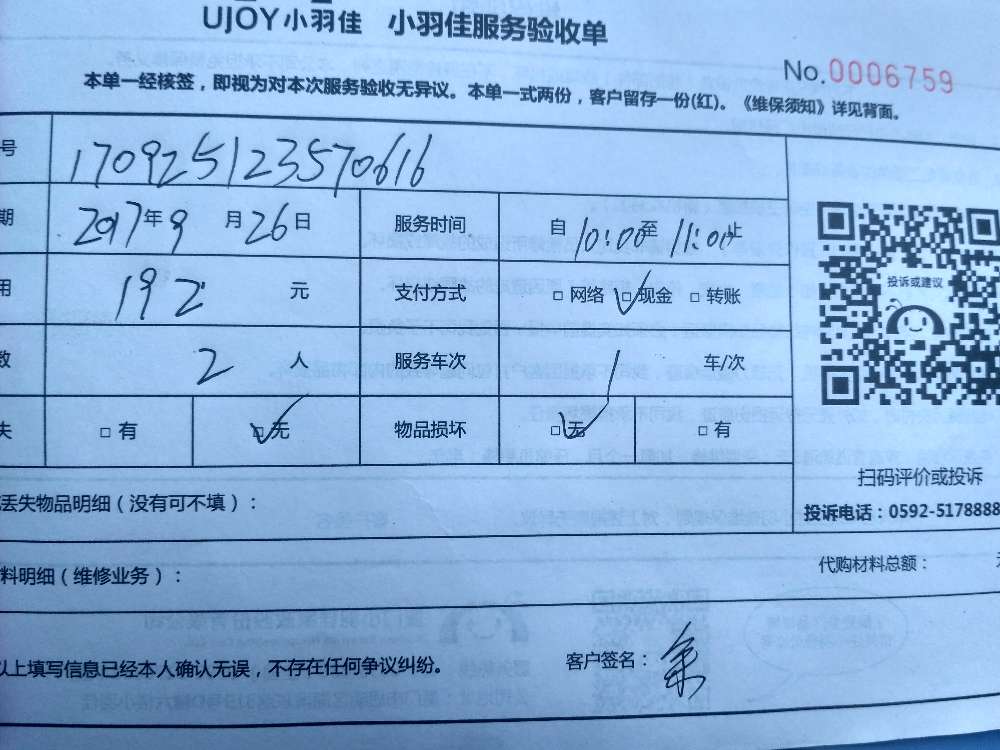 UJOY小羽佳 小羽佳服务验收单
No.0006759
本单一经核签，即视为对本次服务验收无异议。本单一式两份，客户留存一份(红)。《维保须知》详见背面。
号 170925123570616
期 2017年9月26日 服务时间 自10:00至11:00止
用 192元 支付方式 □网络 □现金 □转账
数 2人 服务车次 1车/次
失 □有 □无 物品损坏 □无 □有
投诉或建议
扫码评价或投诉
投诉电话：0592-5178888
丢失物品明细（没有可不填）：
料明细（维修业务）： 代购材料总额：
以上填写信息已经本人确认无误，不存在任何争议纠纷。 客户签名：